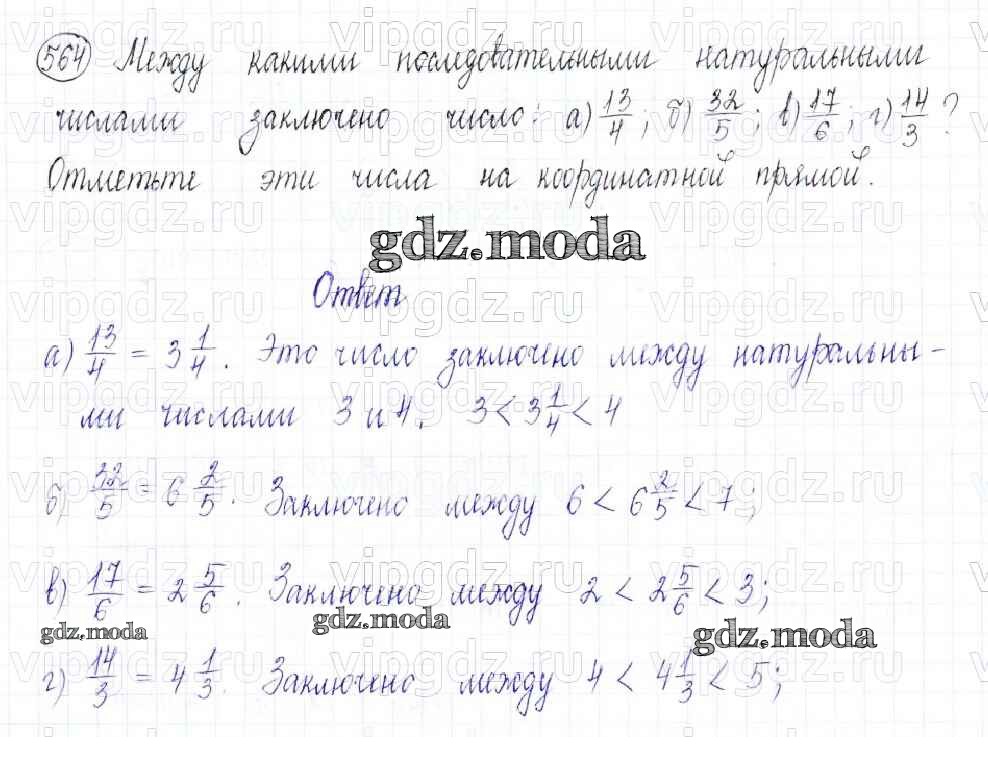 564 Между какими последовательными натуральными
числами заключено число: а) 13/4; б) 32/5; в) 17/6; г) 14/3?
Отметьте эти числа на координатной прямой.
gdz.moda
Ответ
а) 13/4 = 3 1/4. Это число заключено между натуральны-
ми числами 3 и 4. 3 < 3 1/4 < 4
б) 32/5 = 6 2/5. Заключено между 6 < 6 2/5 < 7;
в) 17/6 = 2 5/6. Заключено между 2 < 2 5/6 < 3;
gdz.moda gdz.moda gdz.moda
г) 14/3 = 4 1/3. Заключено между 4 < 4 1/3 < 5;
vipgdz.ru